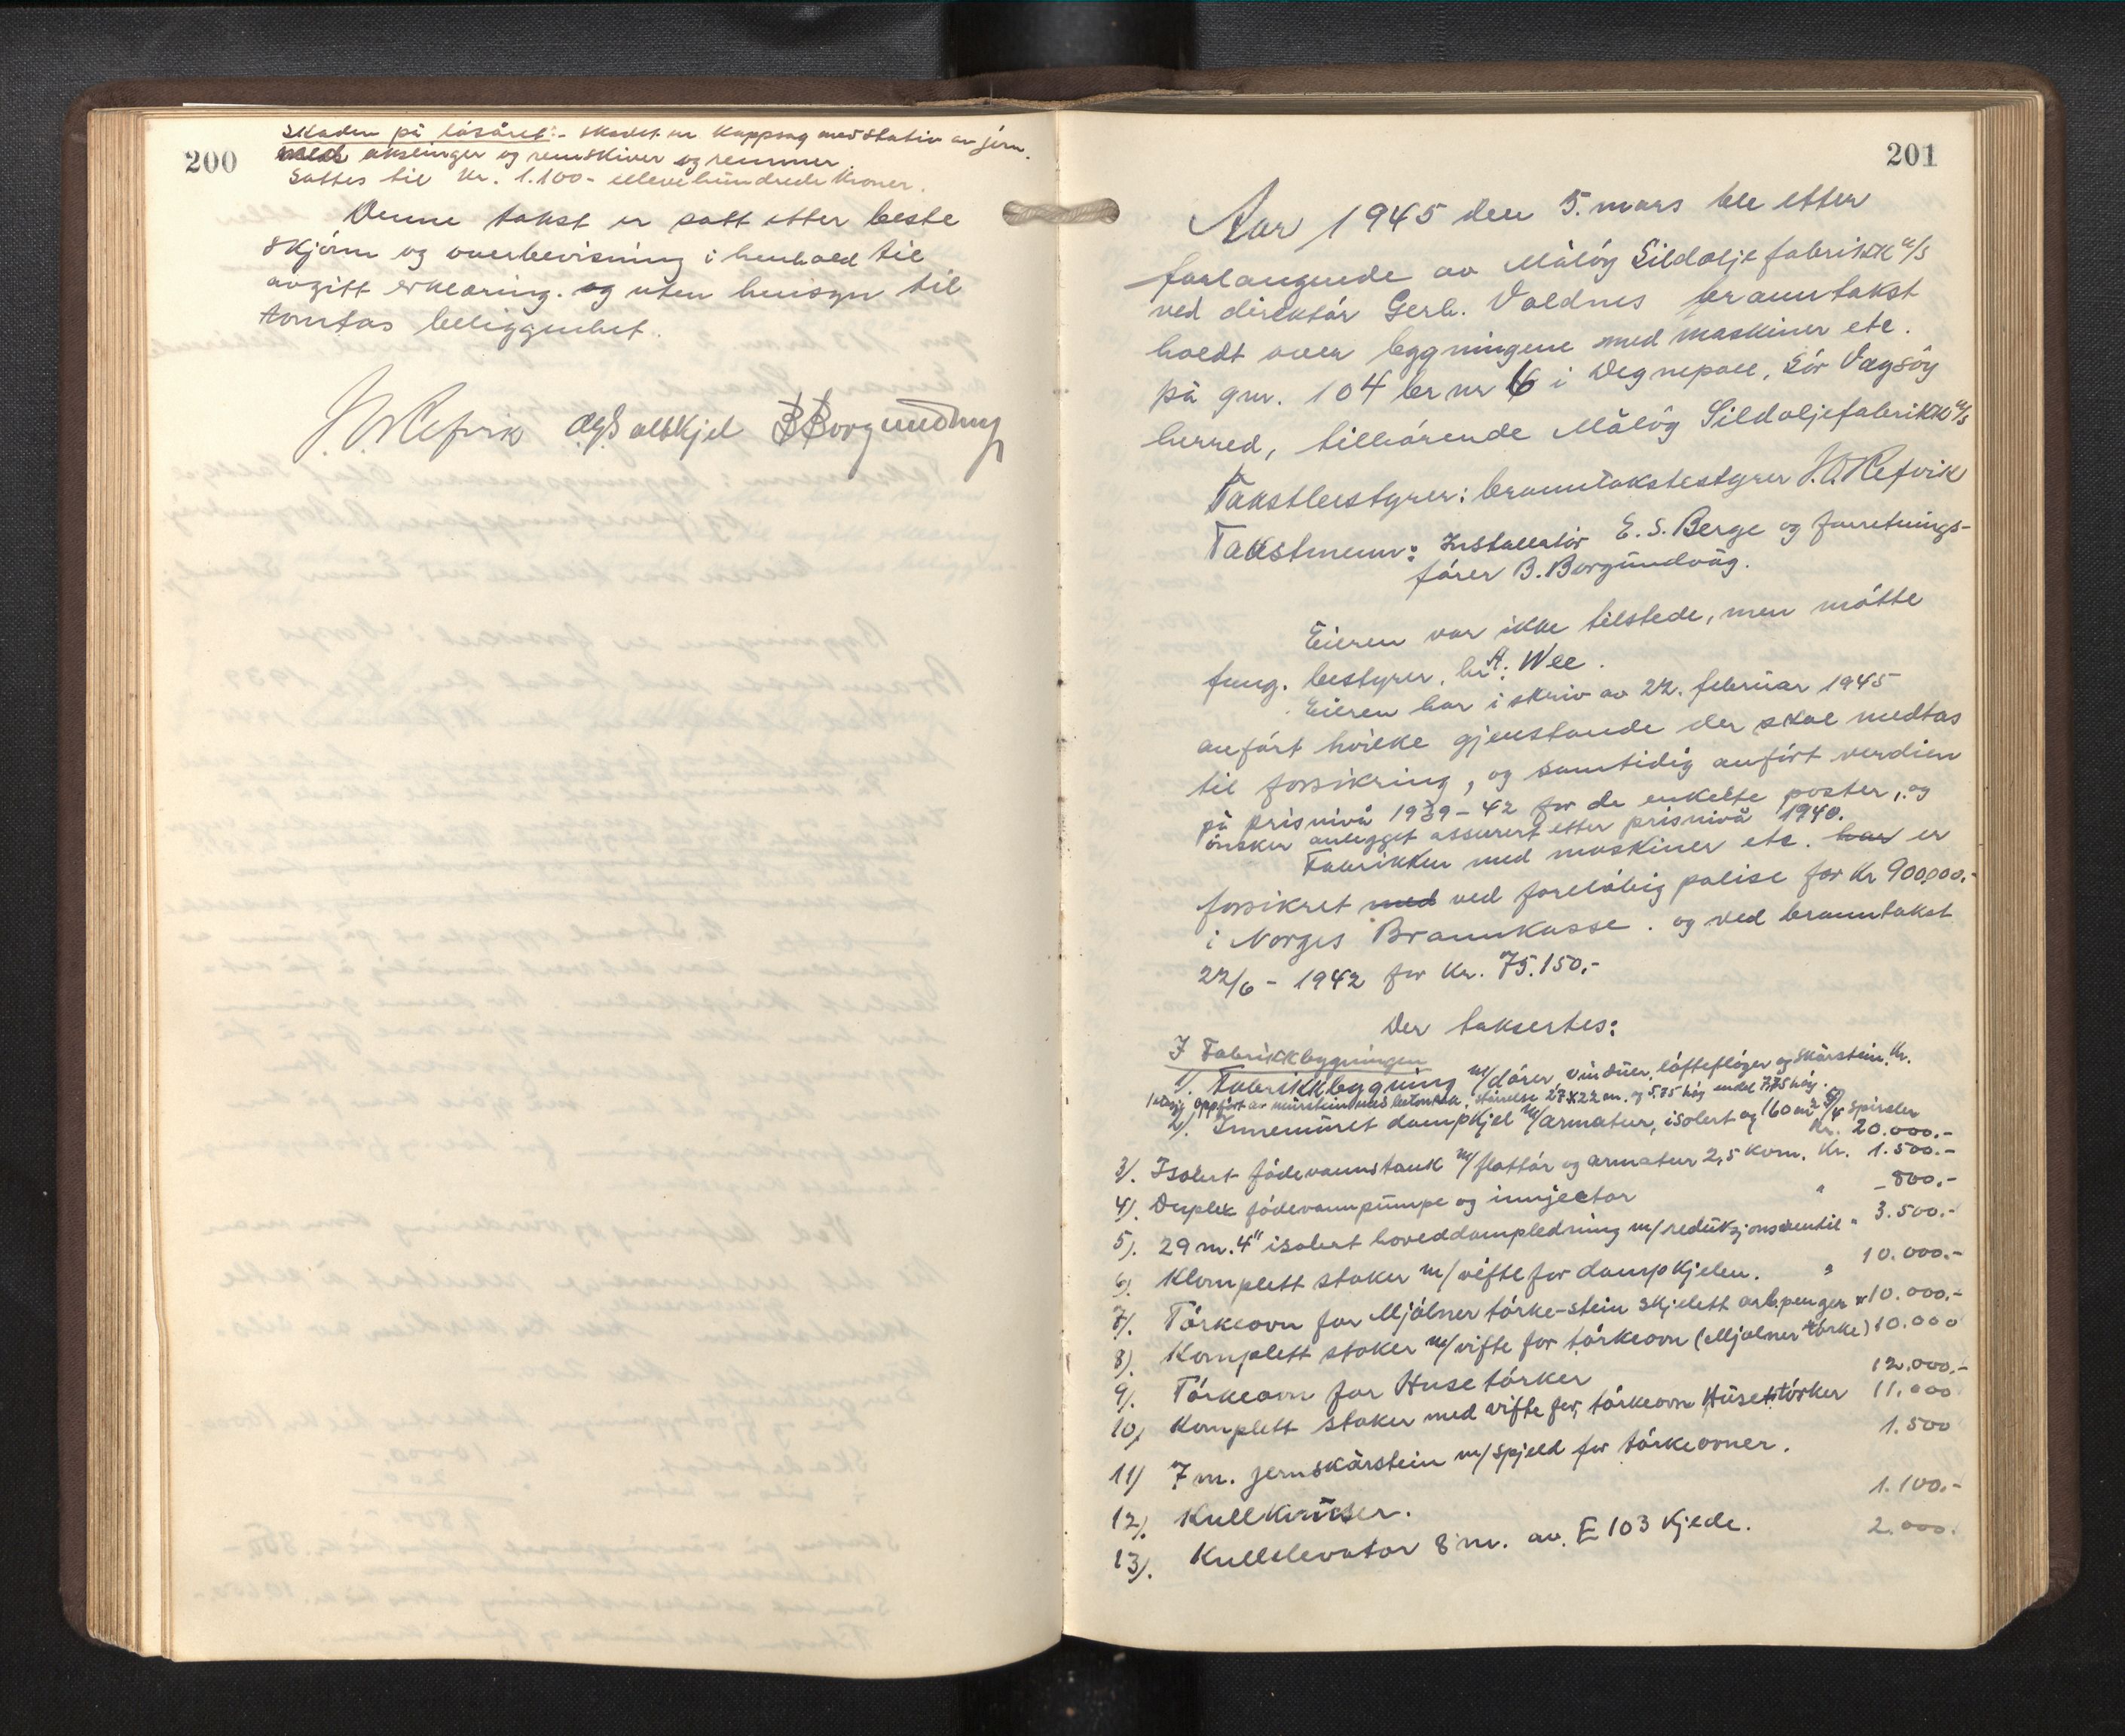 200
Skaden på løsøret:- skadet en kappsag med stativ av jern.
med akslinger og remskiver og remmer.
Sattes til kr. 1.100- ellevehundrede kroner.
Denne takst er satt etter beste
skjønn og overbevisning i henhold til
avgitt erklæring. og uten hensyn til
tomtas beliggenhet.
J. O. Refvik B Borgundvåg
201
Aar 1945 den 5. mars ble etter
forlangende av Måløy Sildoljefabrikk a/s
ved direktør Gerh. Voldnes branntakst
holdt over bygningene med maskiner etc.
på gnr. 104 br nr 6 i Degnepoll, Sør Vågsøy
herred, tilhørende Måløy Sildoljefabrikk a/s
Takstbestyrer: branntakstbestyrer J. O. Refvik
Takstmenn: Installatør E. S. Berge og forretnings-
fører B. Borgundvåg.
Eieren var ikke tilstede, men møtte
fung. bestyrer, hr. A. Wee.
Eieren har i skriv av 22. februar 1945
anført hvilke gjenstande der skal medtas
til forsikring, og samtidig anført verdien
på prisnivå 1939-42 for de enkelte poster, og
ønsker anlegget assurert etter prisnivå 1940.
Fabrikken med maskiner etc. har er
forsikret med ved foreløbig polise for Kr 900.000.-
i Norges Brannkasse. og ved branntakst
22/6 - 1942 for kr. 75.150,-
Der takseres:
I Fabrikkbygningen
1). Fabrikkbygning m/dører, vinduer, løftefløyer og skårstein. Kr.
1 etasje, oppført av murstein med betontak, størrelse 27x22 m. og 5.75 høy endel 7,75 høy.
2). Innemuret dampkjel m/armatur, isolert og 160 m² 5/4 spiraler
Kr. 20.000.-
3). Isolert fødevannstank m/flottør og armatur 2,5 kbm. Kr. 1.500.-
4). Duplex fødevannpumpe og innjector " 800.-
5). 29 m. 4" isolert hoveddampledning m/reduksjonsventil " 3.500.-
6). Komplett stoker m/vifte for dampkjelen. " 10.000.-
7). Tørkeovn for Mjølner tørke-stein skjelett arb.penger " 10.000.-
8). Komplett stoker m/vifte for tørkeovn (Mjølner tørke) 10.000
9). Tørkeovn for Huse tørker 12.000.-
10) Komplett stoker med vifte for tørkeovn Huse tørker 11.000
11) 7 m. jernskårstein m/spjeld for tørkeovner. 1.500
12). Kullknuser. 1.100.-
13). Kullelevator 8 m. av E 103 kjede. 2.000.